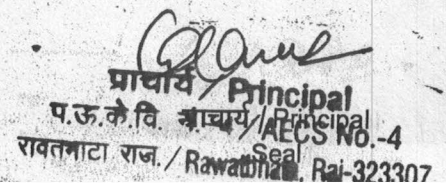 प्राचार्य / Principal
प.ऊ.के.वि. प्राचार्य / Principal
AECS No.-4
Seal
रावतभाटा राज. / Rawatbhata, Raj-323307